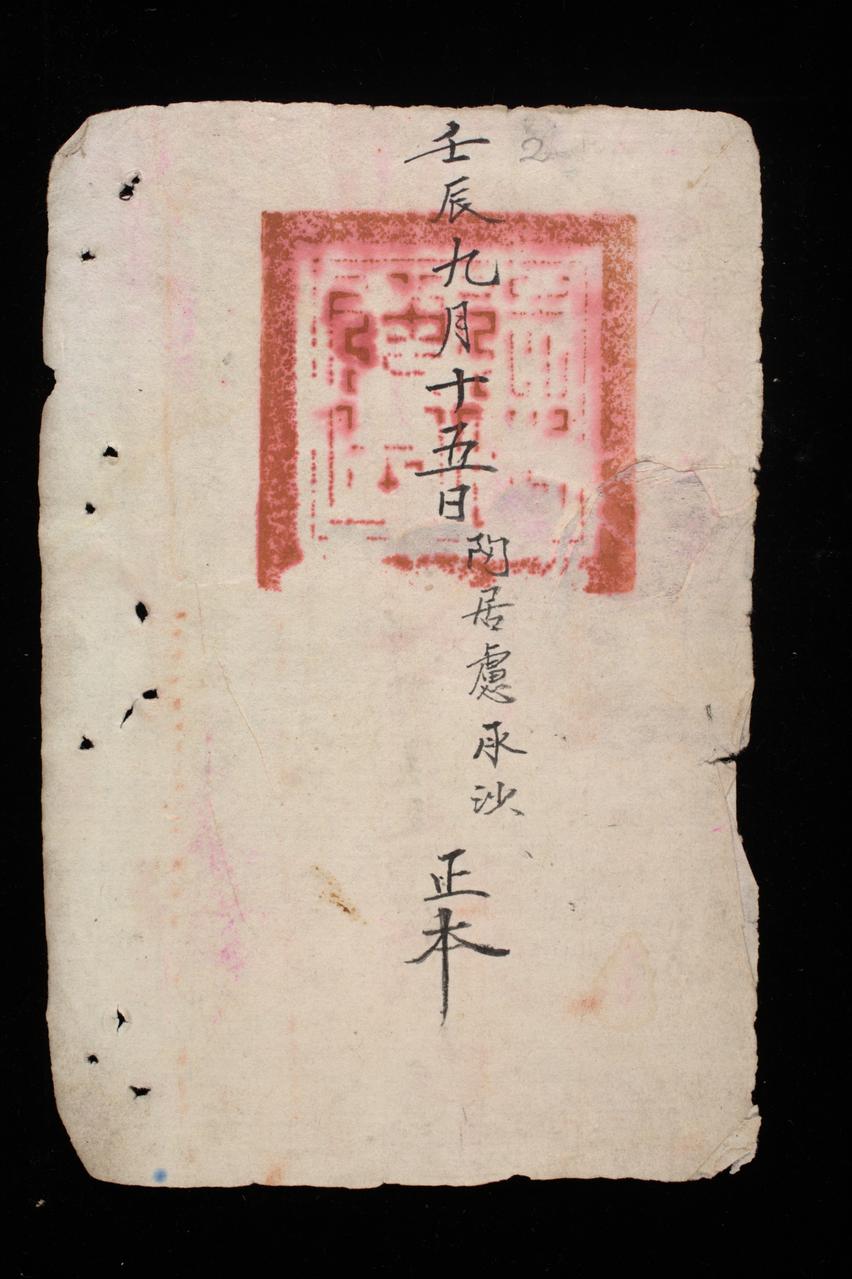 壬辰九月十五日
居慮承沙
正本
2